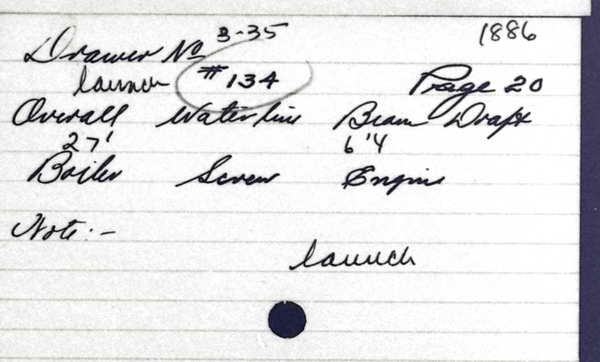 Drawer No 3-35 1886
launch #134 Page 20
Overall Waterline Beam Draft
27' 6'4
Boiler Screw Engine
Note:-
launch